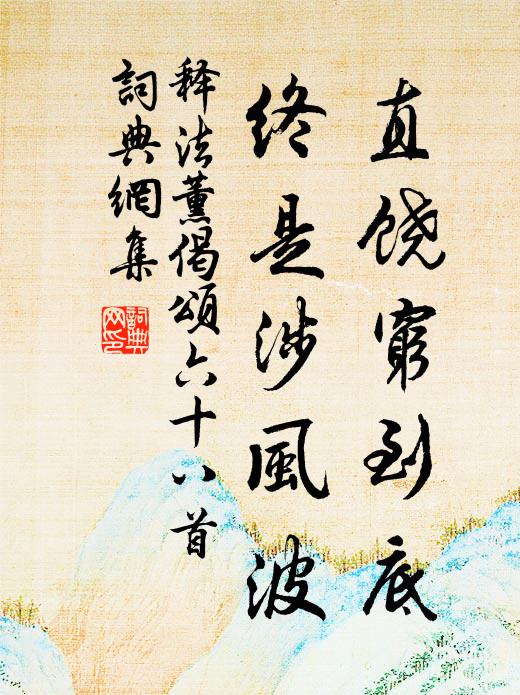 直饶窮到底
終是涉風波
释法薰偈頌六十八首
詞典網集
詞典
网印